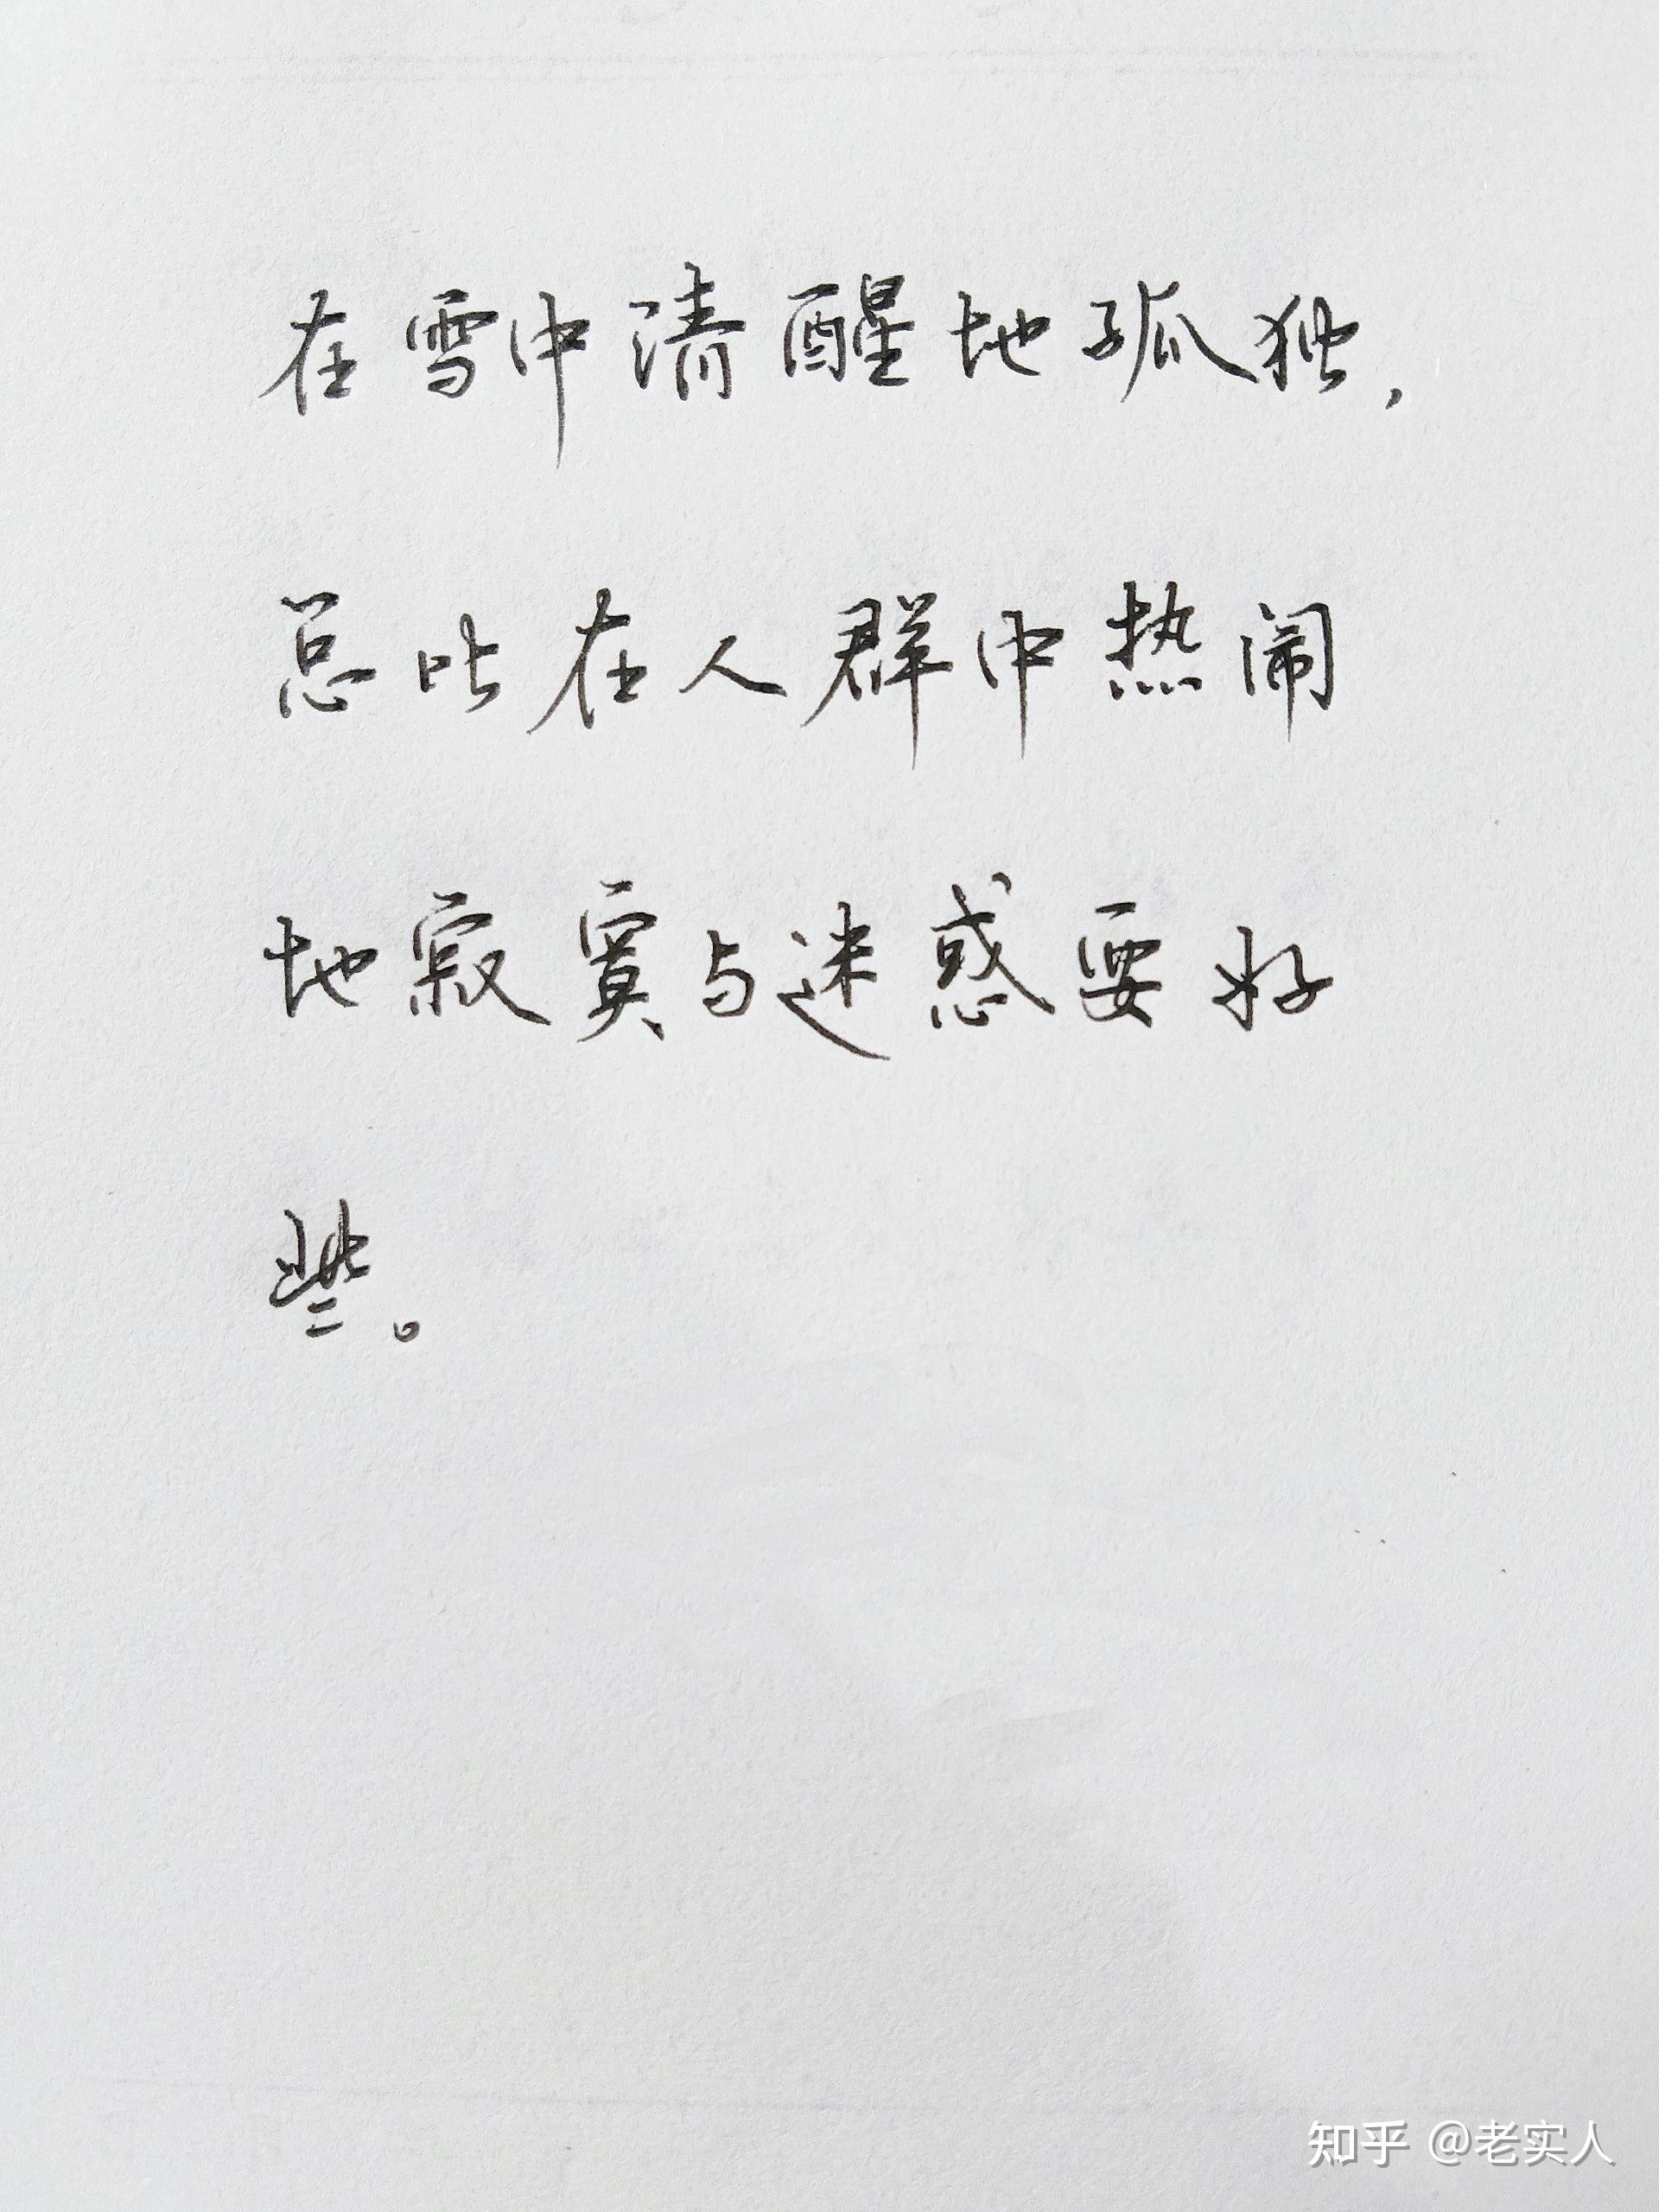 在雪中清醒地孤独,
总比在人群中热闹
地寂寞与迷惑要好
些。
知乎 @老实人